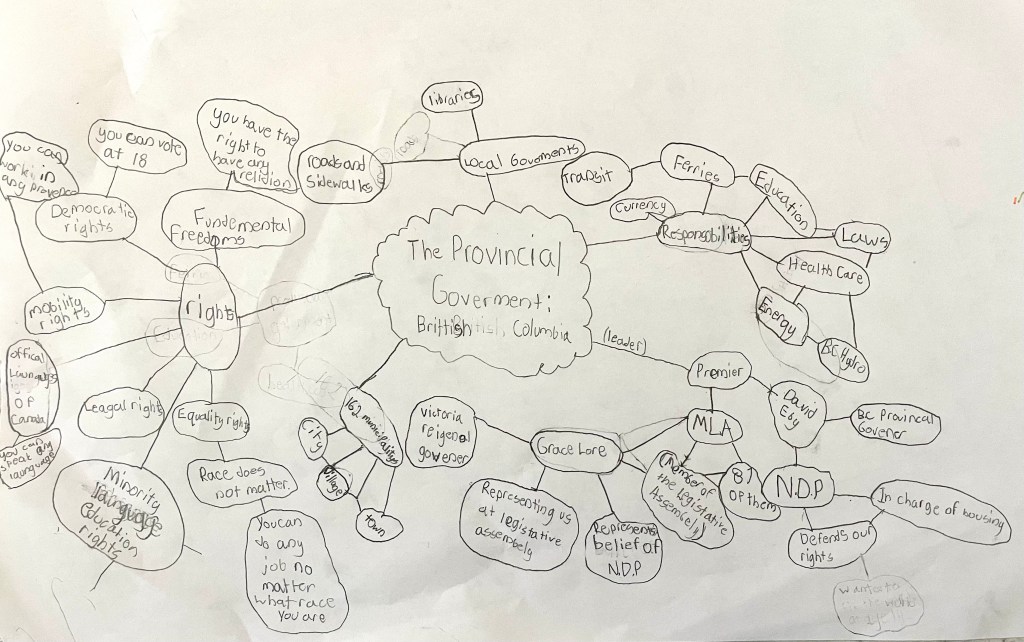 libraries
Local Goverments
roads and
sidewalks
you have the
right to
have any
religion
you can vote
at 18
you can
work in
any provence
Democratic
rights
Fundemental
Freedoms
Transit
Ferries
Education
Currency
Responsobilities
Laws
Health Care
Energy
BC Hydro
The Provincial
Goverment:
Brittish Columbia
rights
mobility
rights
offical
OP
Canada
you can
speak any
launguage
Leagal rights
Equality rights
Minority
language
Education
rights
Race does
not matter.
You can
do any
job no
matter
what race
you are
162 municipalitys
City
Village
town
(leader)
Premier
David
Eby
BC Provincal
Govener
MLA
(Member of
the legistative
Assembely)
87
OF them
Grace Lore
victoria
reigenal
govener
Representing us
at legistative
assembely
Represents
belief of
N.D.P
N.D.P
In charge of housing
Defends our
rights